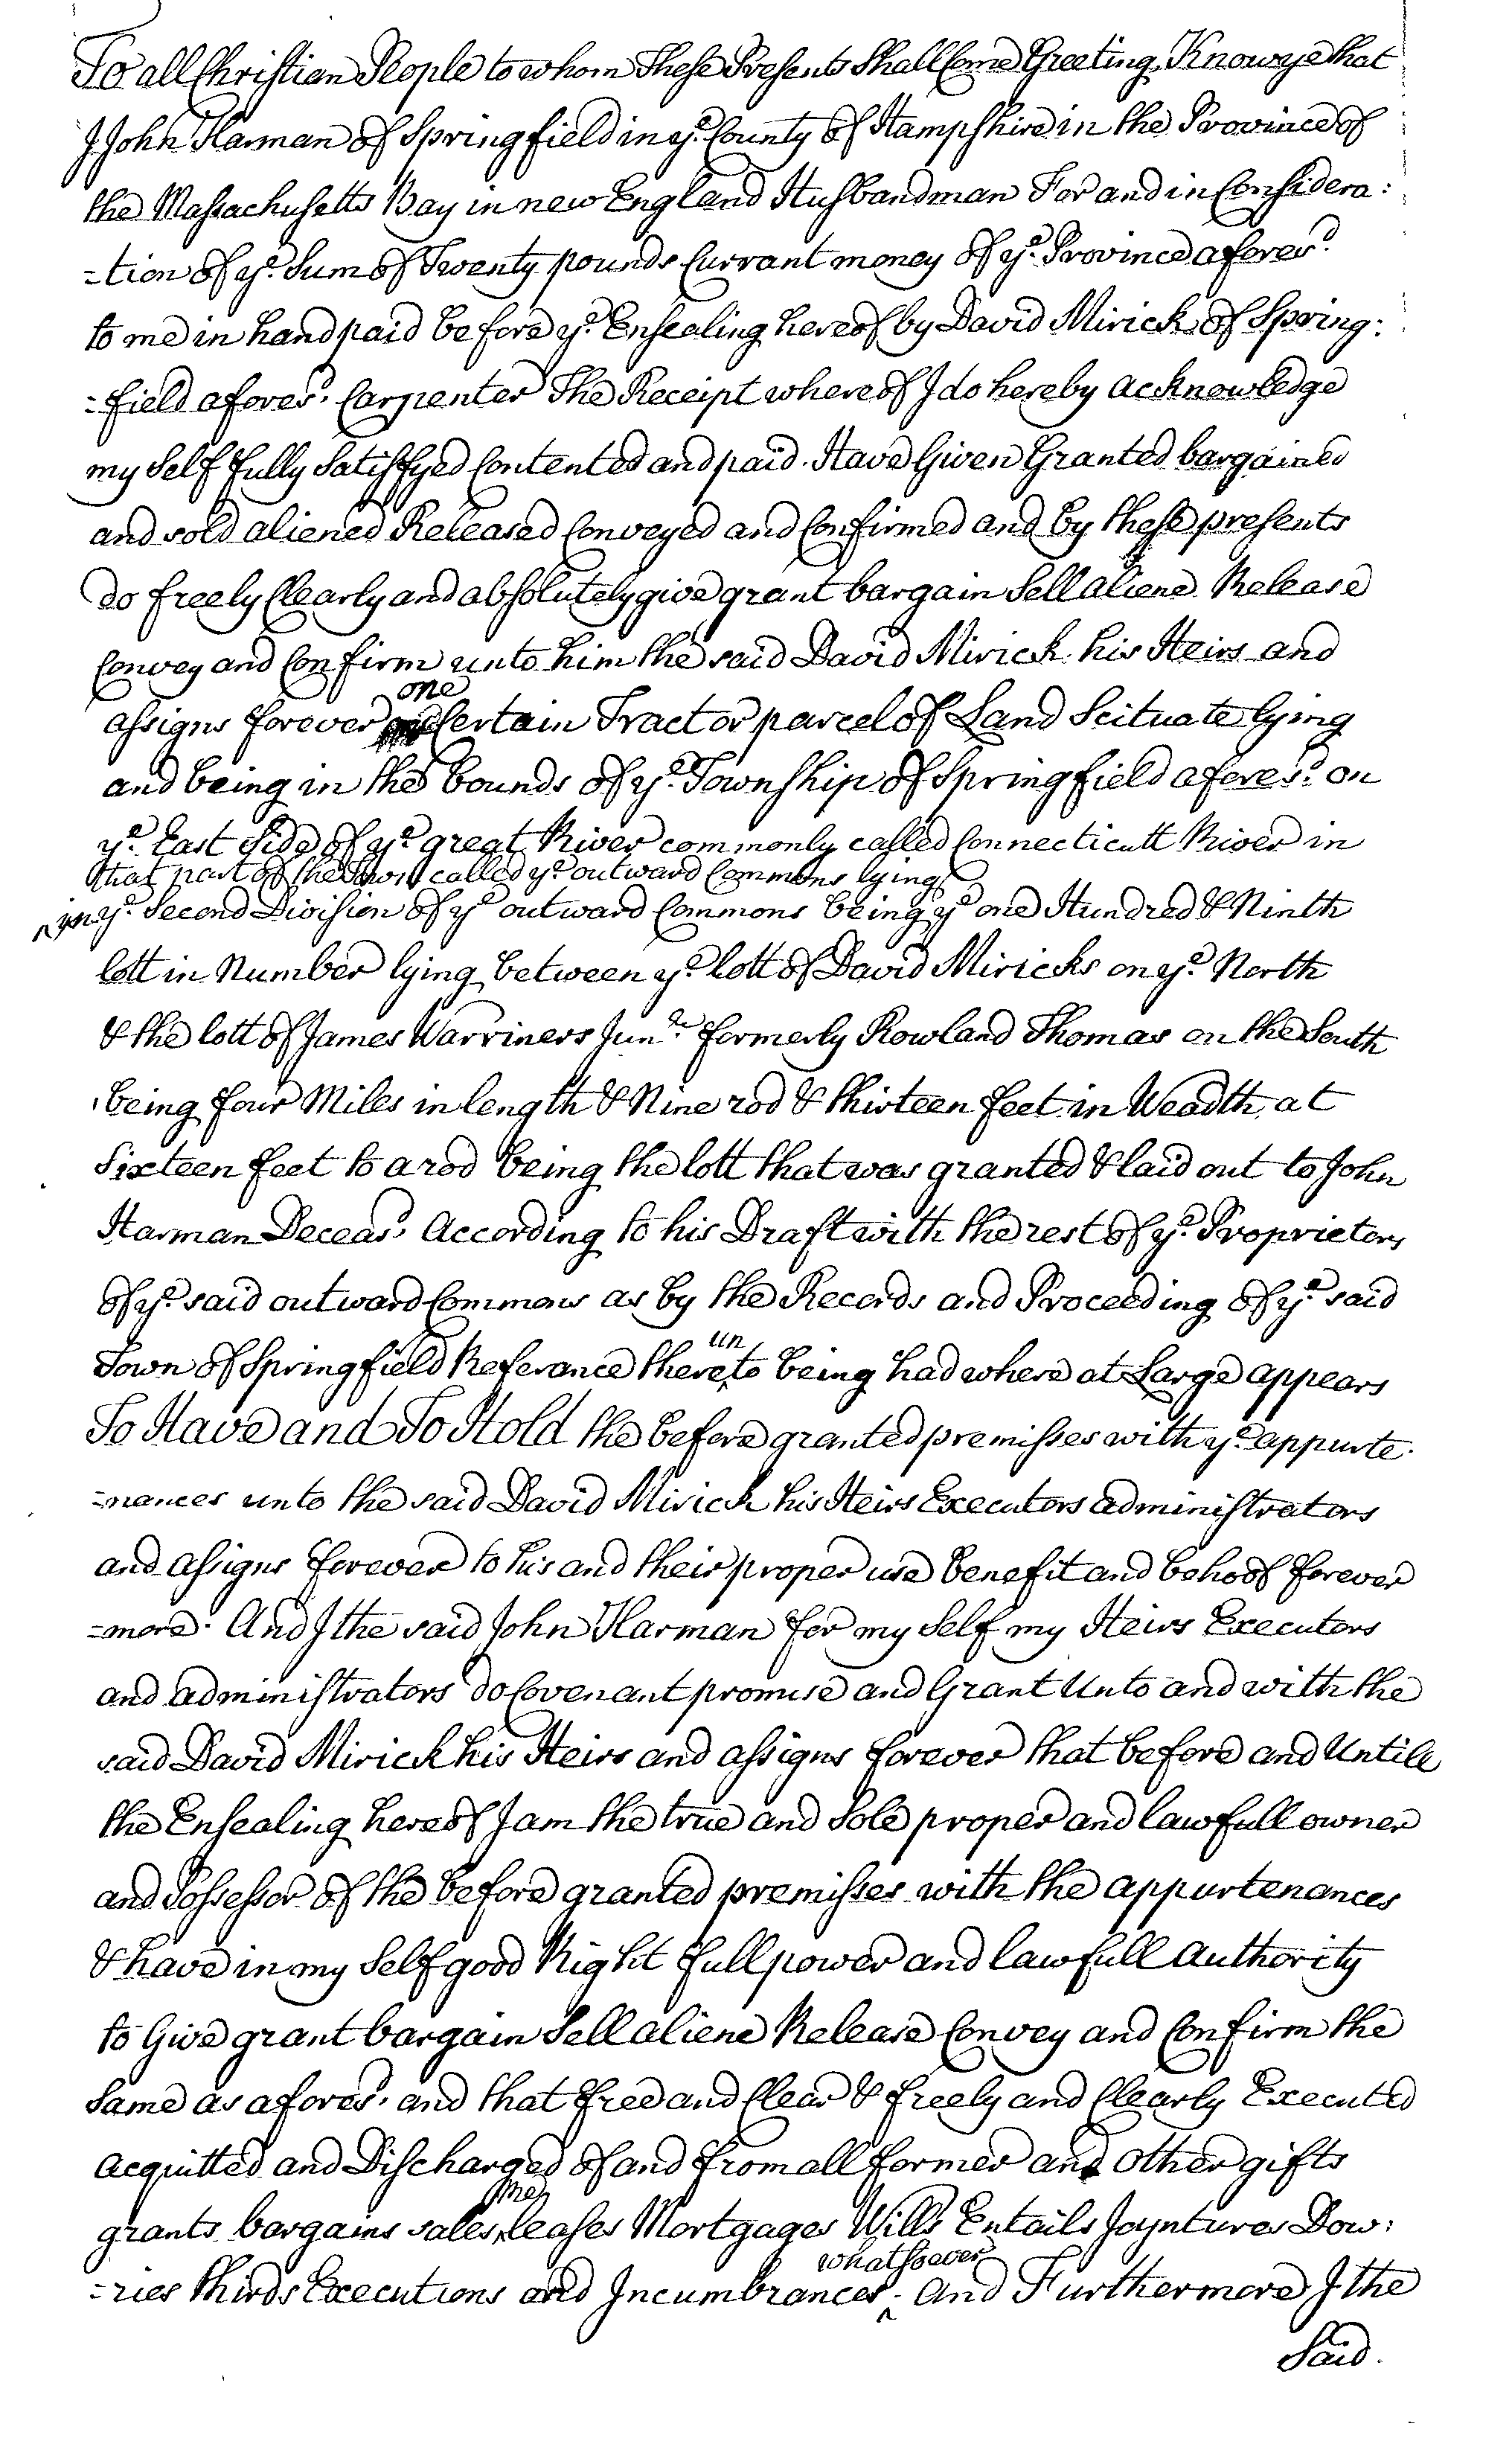 To all Christian People to whom These Presents Shall Come Greeting, Know ye that
I John Harman of Springfield in ye County of Hampshire in the Province of
the Massachusetts Bay in new England Husbandman For and in Considera:
=tion of ye Sum of Twenty pounds Currant money of ye Province aforesd
to me in hand paid before ye Ensealing hereof by David Mirick of Spring:
=field aforesd Carpenter The Receipt whereof I do hereby acknowledge
my Self fully Satisfyed Contented and paid. Have Given Granted bargained
and sold aliened Released Conveyed and Confirmed and by these presents
do freely Clearly and absolutely give grant bargain Sell aliene Release
Convey and Confirm unto him the said David Mirick his Heirs and
assigns forever one Certain Tract or parcel of Land Scituate lying
and being in the bounds of ye Township of Springfield aforesd on
ye East Side of ye great River commonly called Connecticutt River in
that part of the Town called ye outward Commons lying
in ye Second Division of ye outward Commons being ye one Hundred & Ninth
lott in Number lying between ye lott of David Miricks on ye North
& the lott of James Warriners Junr formerly Rowland Thomas on the South
being four Miles in length & Nine rod & thirteen feet in Weadth at
Sixteen feet to a rod being the lott that was granted & laid out to John
Harman Deceasd According to his Draft with the rest of ye Proprietors
of ye said outward Commons as by the Records and Proceeding of ye said
Town of Springfield Referance thereunto being had where at Large appears
To Have and To Hold the before granted premisses with ye appurte:
=nances unto the said David Mirick his Heirs Executors administrators
and assigns forever to his and their proper use benefit and behoof forever
=more. And I the said John Harman for my Self my Heirs Executors
and administrators do Covenant promise and Grant Unto and with the
said David Mirick his Heirs and assigns forever that before and Untill
the Ensealing hereof I am the true and Sole proper and lawfull owner
and Possessor of the before granted premisses with the appurtenances
& have in my Self good Right full power and lawfull authority
to Give grant bargain Sell aliene Release Convey and Confirm the
Same as aforesd and that free and Clear & freely and Clearly Executed
acquitted and Discharged of and from all former and other gifts
grants bargains sales leases Mortgages Wills Entails Joyntures Dow:
=ries thirds Executions and Incumbrances whatsoever. And Furthermore I the
Said.